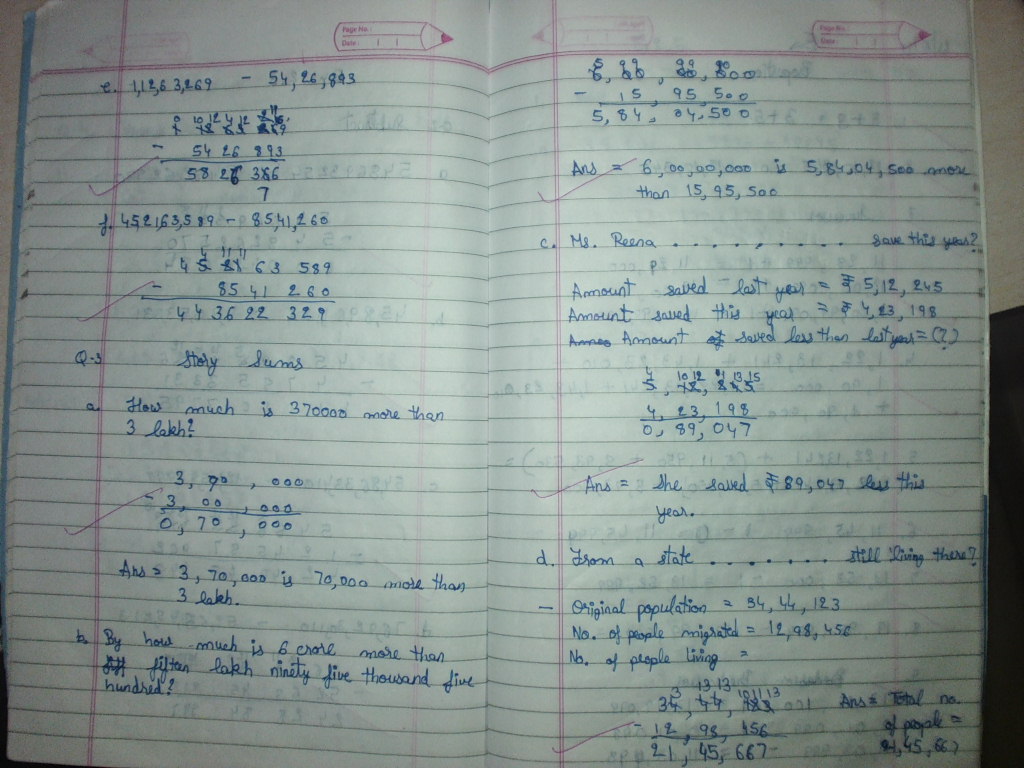 Page No. :
Date :
e. 1,12,63,269 - 54,26,893
- 54 26 893
58 26 366
7
f. 452163,589 - 85,41,260
4 5 21 63 589
- 85 41 260
4 4 36 22 329
Q-3 Story Sums
a. How much is 370000 more than
3 lakh?
3, 70, 000
- 3, 00, 000
0, 70, 000
Ans = 3, 70,000 is 70,000 more than
3 lakh.
b. By how much is 6 crore more than
fifteen lakh ninety five thousand five
hundred?
Page No. :
Date :
6, 00, 00, 000
- 15, 95, 500
5, 84, 04, 500
Ans = 6,00,00,000 is 5,84,04,500 more
than 15,95,500
c. Ms. Reena . . . . . . . . . . save this year?
Amount saved last year = ₹ 5,12,245
Amount saved this year = ₹ 4,23,198
Amount saved less than last year = (?)
4 10 12 11 13 15
5, 12, 245
4, 23, 198
0, 89, 047
Ans = She saved ₹ 89,047 less this
year.
d. From a state . . . . . . . still living there?
- Original population = 34,44,123
No. of people migrated = 12,98,456
No. of people living =
3 13 13 10 11 13
34, 44, 123
- 12, 98, 456
21, 45, 667
Ans = Total no.
of people =
21,45,667